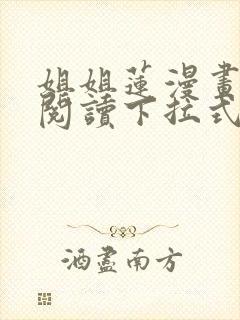 姐姐蓮漫畫
閱讀下拉式
酒盡南方